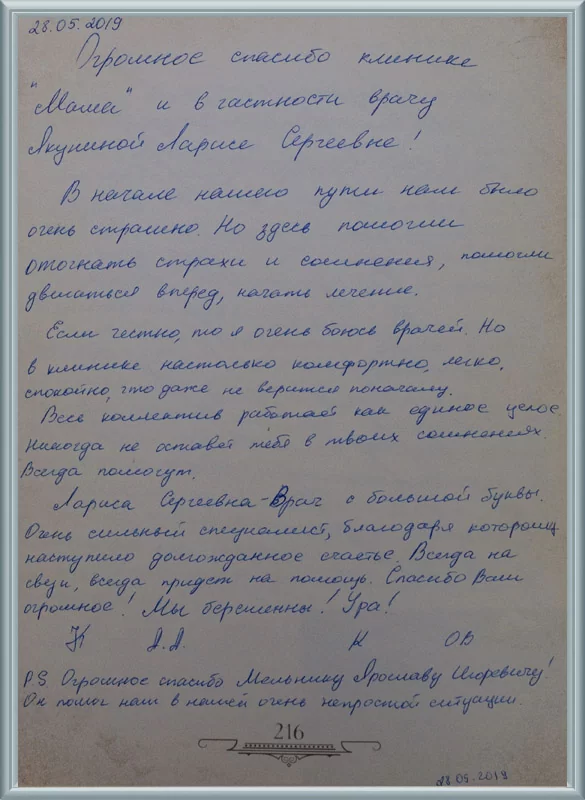 28.05.2019
Огромное спасибо клинике
"Мама" и в частности врачу
Якуниной Ларисе Сергеевне!
В начале нашего пути нам было
очень страшно. Но здесь помогли
отогнать страхи и сомнения, помогли
двигаться вперед, начать лечение.
Если честно, то я очень боюсь врачей. Но
в клинике настолько комфортно, легко,
спокойно, что даже не верится поначалу.
Весь коллектив работает как единое целое.
Никогда не оставят тебя в твоих сомнениях.
Всегда помогут.
Лариса Сергеевна-Врач с большой буквы.
Очень сильный специалист, благодаря которому
наступило долгожданное счастье. Всегда на
связи, всегда придет на помощь. Спасибо Вам
огромное! Мы беременны! Ура!
К А.А. К ОВ
P.S. Огромное спасибо Мельнику Ярославу Игоревичу!
Он помог нам в нашей очень непростой ситуации.
216
28.05.2019